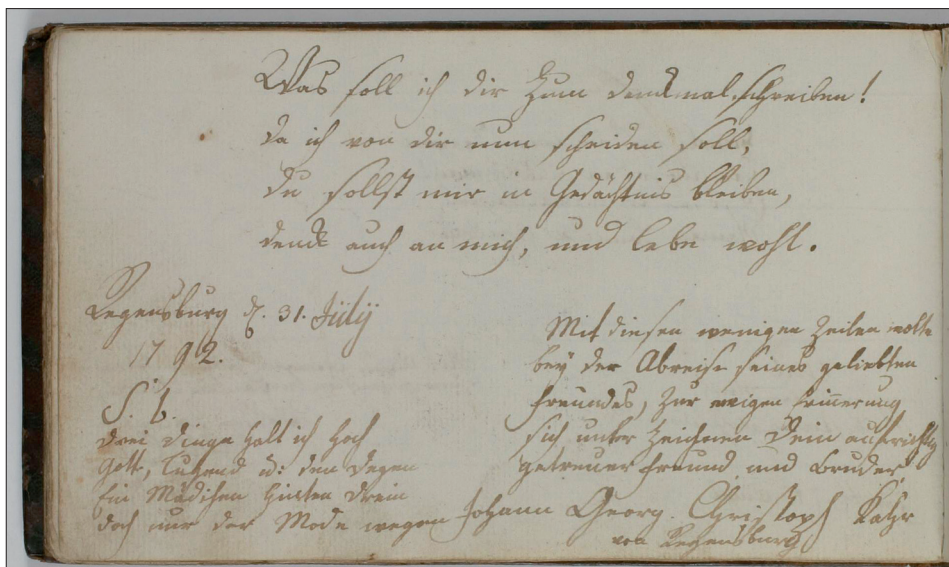 Was soll ich dir zum denkmal schreiben!
da ich von dir nun scheiden soll,
du sollst mir in Gedächtnis bleiben,
denck auch an mich, und lebe wohl.
Regensburg d. 31. Julij
1792.
S. L.
Drei Dinge halt ich hoch
Gott, Tugend u: den Degen
Ein Mädchen hinten drein
doch nur der Mode wegen
Mit diesen wenigen Zeilen wolte
bey der Abreise seines geliebten
freundes, zur ewigen Erinnerung
sich unter Zeichnen Dein aufrichtig
getreuer freund und bruder
Johann Georg Christoph
von Regensburg